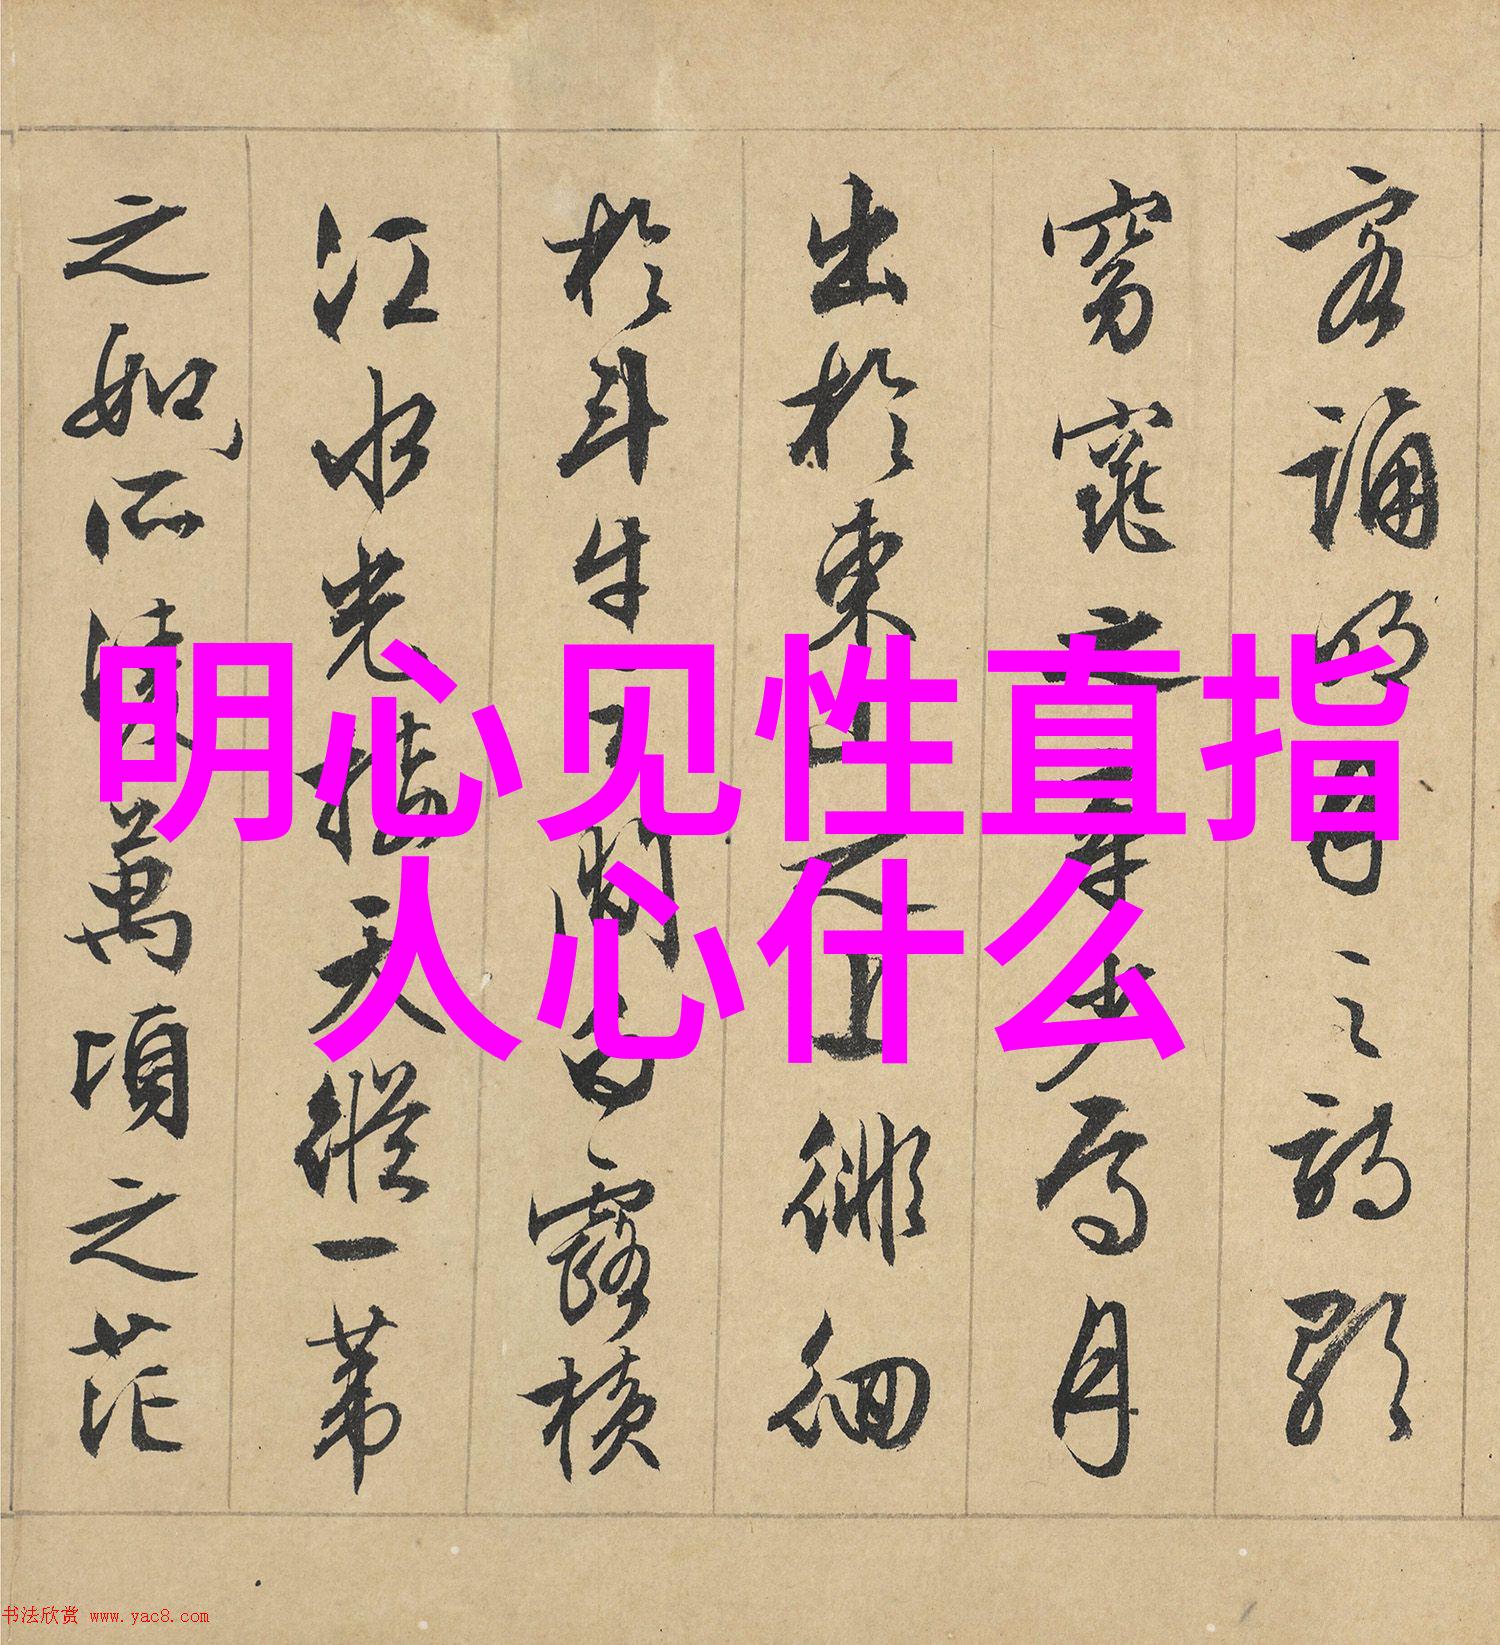 客誦明月之詩歌
窈窕之章少焉月
出於東山之上徘徊
於斗牛之間白露橫
江水光接天縱一葦
之如所淩萬頃之茫
明心见性直指
人心什么
书法欣赏 www.yac8.com